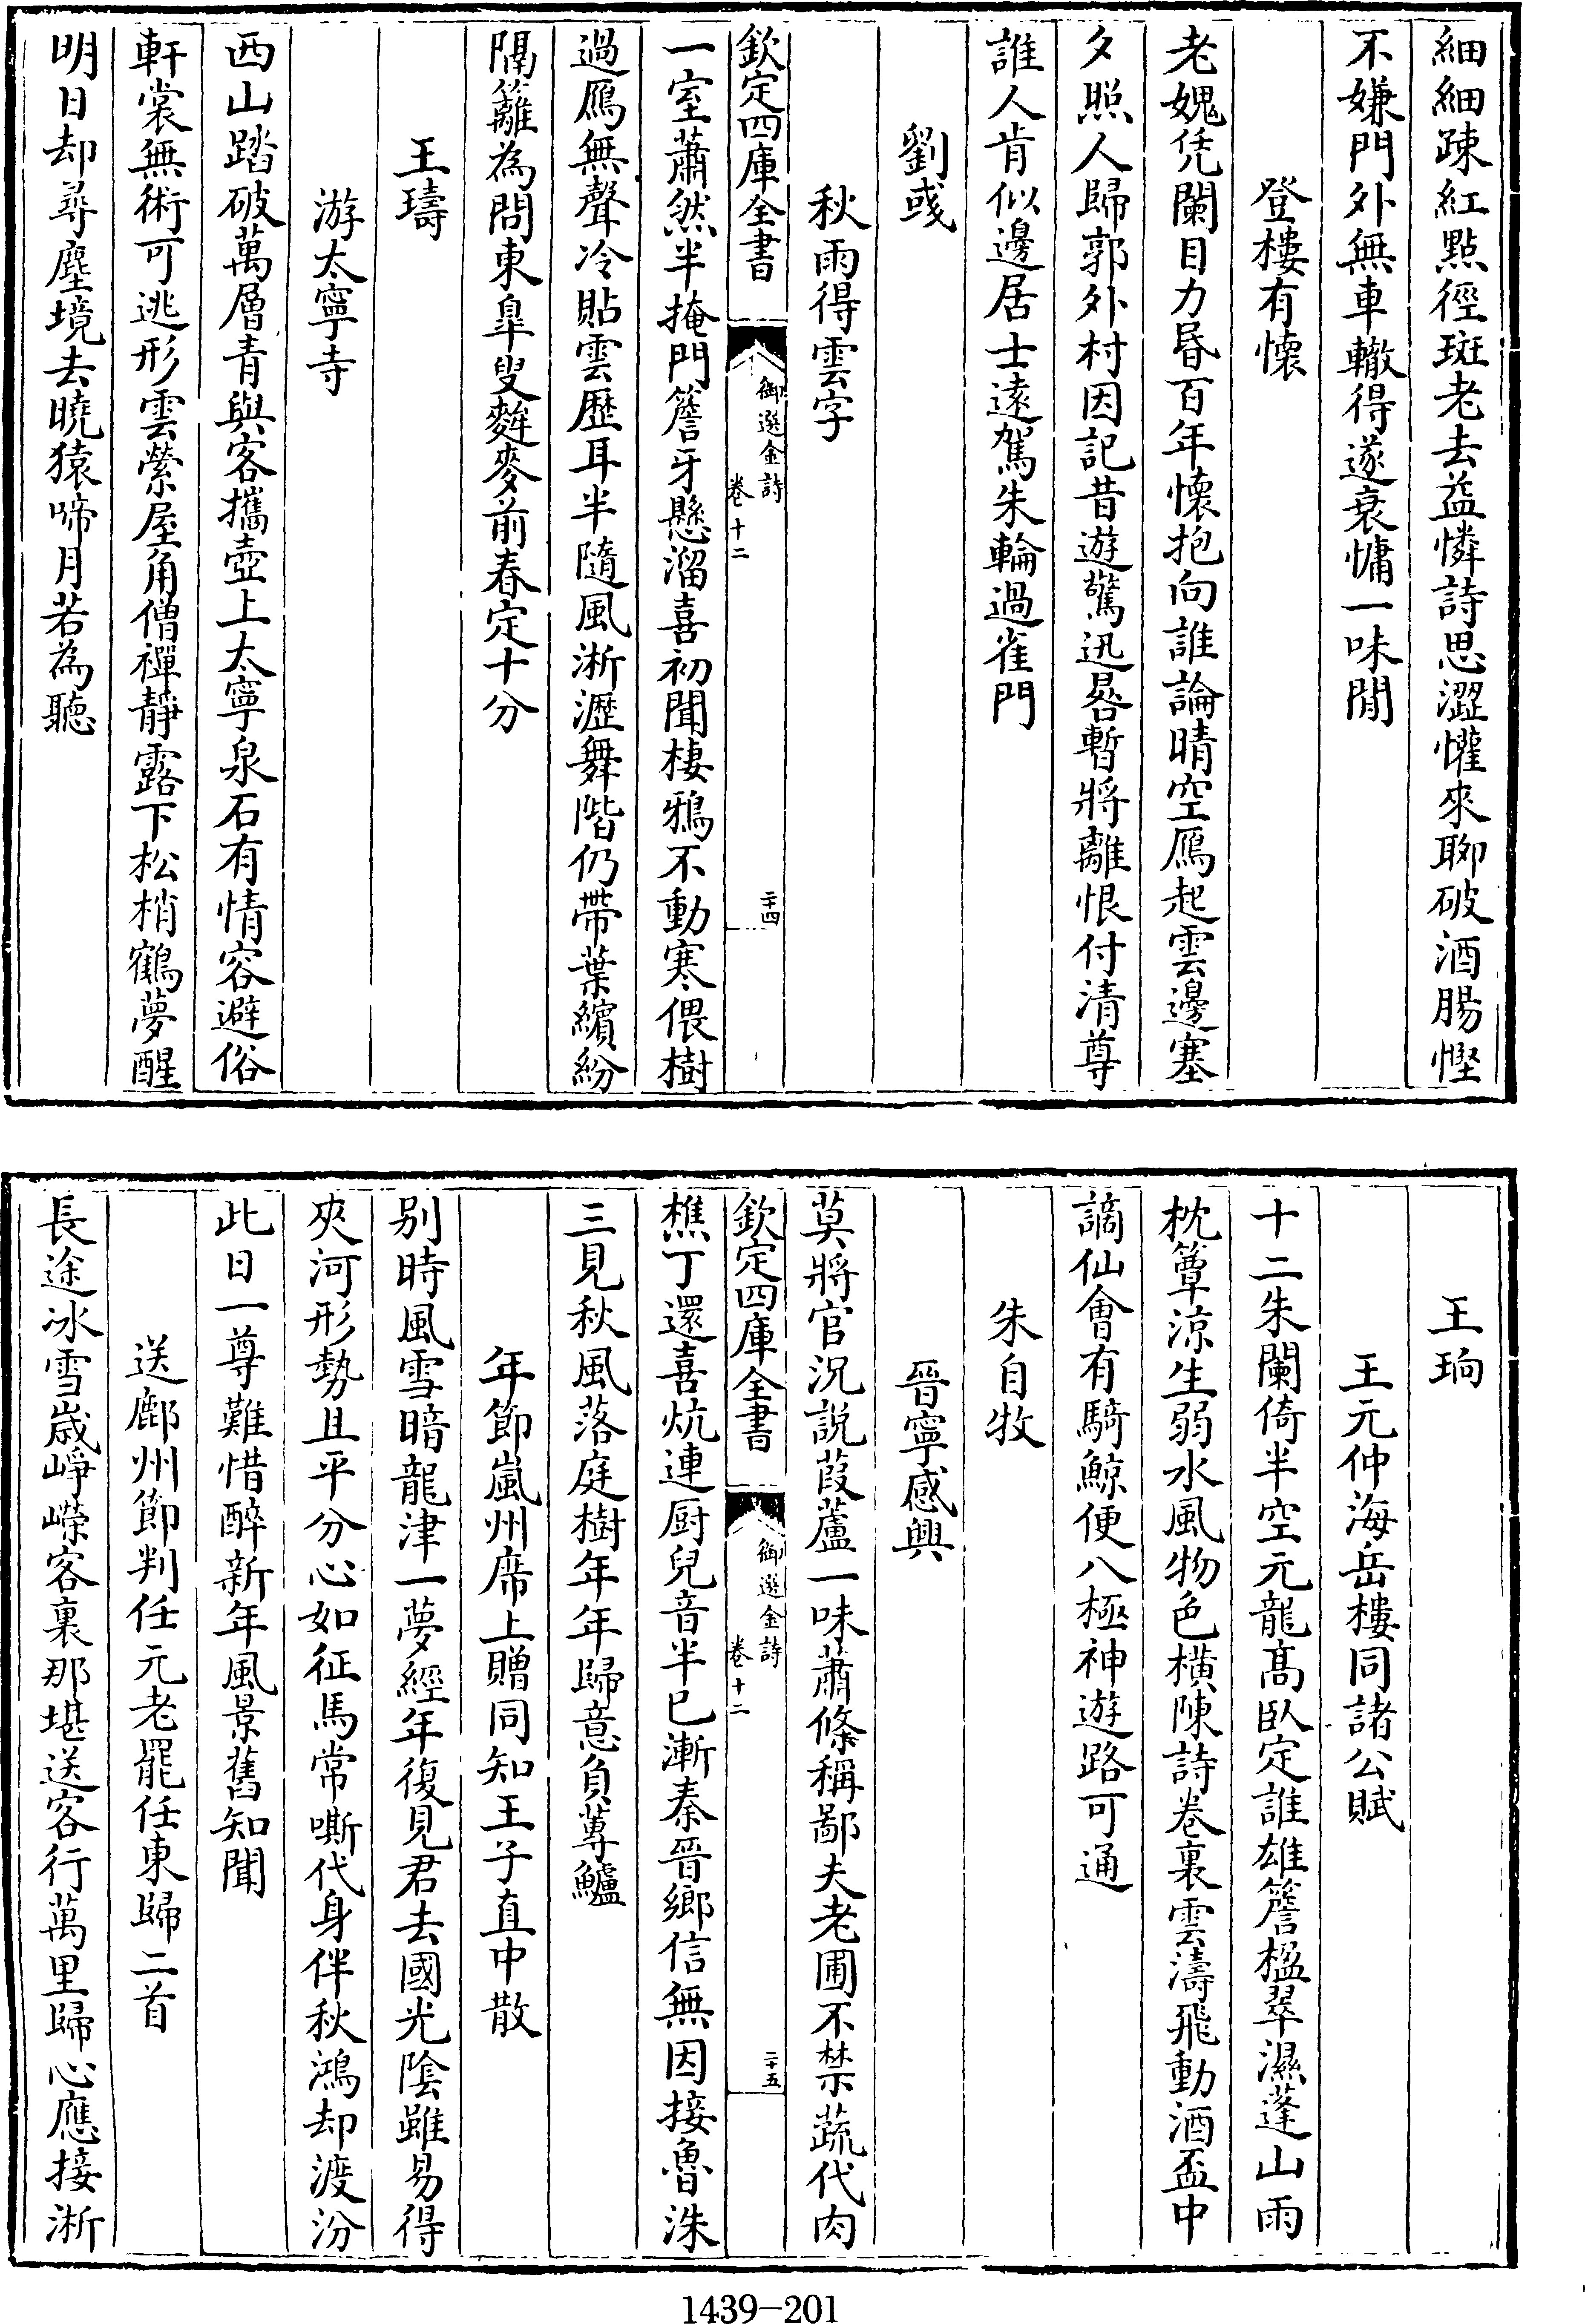 細細疎紅點徑斑老去益憐詩思澀懽來聊破酒腸慳
不嫌門外無車轍得遂衰慵一味閒
登樓有懷
老媿凭闌目力昏百年懷抱向誰論晴空鴈起雲邊塞
夕照人歸郭外村因記昔遊驚迅晷暫將離恨付清尊
誰人肯似邊居士遠駕朱輪過雀門
劉彧
秋雨得雲字
欽定四庫全書
御選金詩
卷十二
二十四
一室蕭然半掩門簷牙懸溜喜初聞棲鴉不動寒偎樹
過鴈無聲冷貼雲歷耳半隨風淅瀝舞階仍帶葉繽紛
隔籬為問東臯叟麰麥前春定十分
王璹
游太寧寺
西山踏破萬層青與客攜壺上太寧泉石有情容避俗
軒裳無術可逃形雲縈屋角僧禪靜露下松梢鶴夢醒
明日却尋塵境去曉猿啼月若為聽
王珦
王元仲海岳樓同諸公賦
十二朱闌倚半空元龍髙臥定誰雄簷楹翠濕蓬山雨
枕簟涼生弱水風物色橫陳詩卷裏雲濤飛動酒盃中
謫仙會有騎鯨便八極神遊路可通
朱自牧
晉寧感興
莫將官況説葭蘆一味蕭條稱鄙夫老圃不禁蔬代肉
欽定四庫全書
御選金詩
卷十二
二十五
樵丁還喜炕連厨兒音半已漸秦晉鄉信無因接魯洙
三見秋風落庭樹年年歸意負蓴鱸
年節嵐州席上贈同知王子直中散
别時風雪暗龍津一夢經年復見君去國光陰雖易得
夾河形勢且平分心如征馬常嘶代身伴秋鴻却渡汾
此日一尊難惜醉新年風景舊知聞
送鄜州節判任元老罷任東歸二首
長途冰雪歲崢嶸客裏那堪送客行萬里歸心應接淅
1439-201